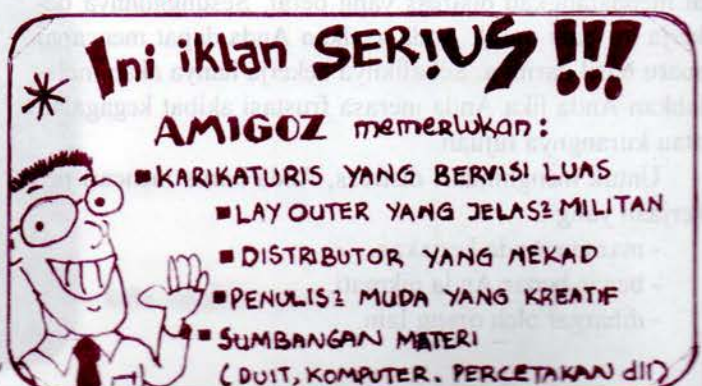 * Ini iklan SERIUS !!!
AMIGOZ memerlukan:
▪KARIKATURIS YANG BERVISI LUAS
▪LAY OUTER YANG JELAS2 MILITAN
▪DISTRIBUTOR YANG NEKAD
▪PENULIS2 MUDA YANG KREATIF
▪SUMBANGAN MATERI
(DUIT, KOMPUTER. PERCETAKAN dll)